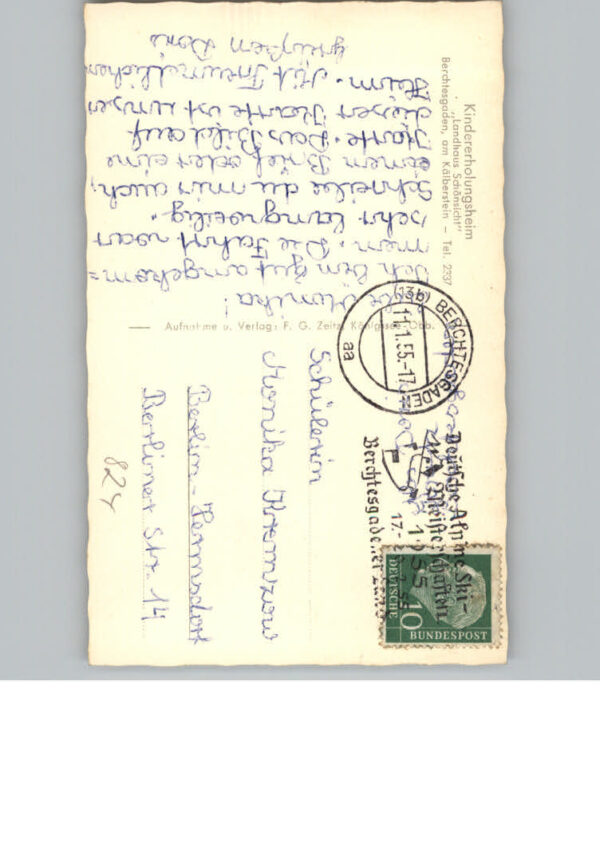 Kindererholungsheim
"Landhaus Schönsicht"
Berchtesgaden, am Kälberstein – Tel. 2337
Liebe Monika!
Ich bin gut angekom=
men. Die Fahrt war
sehr langweilig.
Schreibe du mir auch,
einen Brief oder eine
Karte. Das Bild auf
dieser Karte ist unser
Heim. Mit freundlichen
grüßen Doris
Aufnahme u. Verlag: F. G. Zeitz, Königssee-Obb.
(13b) BERCHTESGADEN
11.1.55.-17
aa
Deutsche Alpine Ski-
Meisterschaften
1955
Berchtesgadener Land
DEUTSCHE
BUNDESPOST
10
Schülerin
Monika
Berlin-Hermsdorf
Berliner Str. 14
824